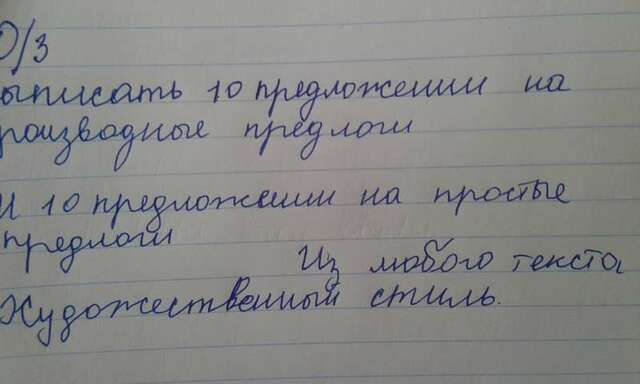 Д/З
выписать 10 предложении на
производное предлоги
И 10 предложении на простые
предлоги
Из любого текста,
Художественный стиль.